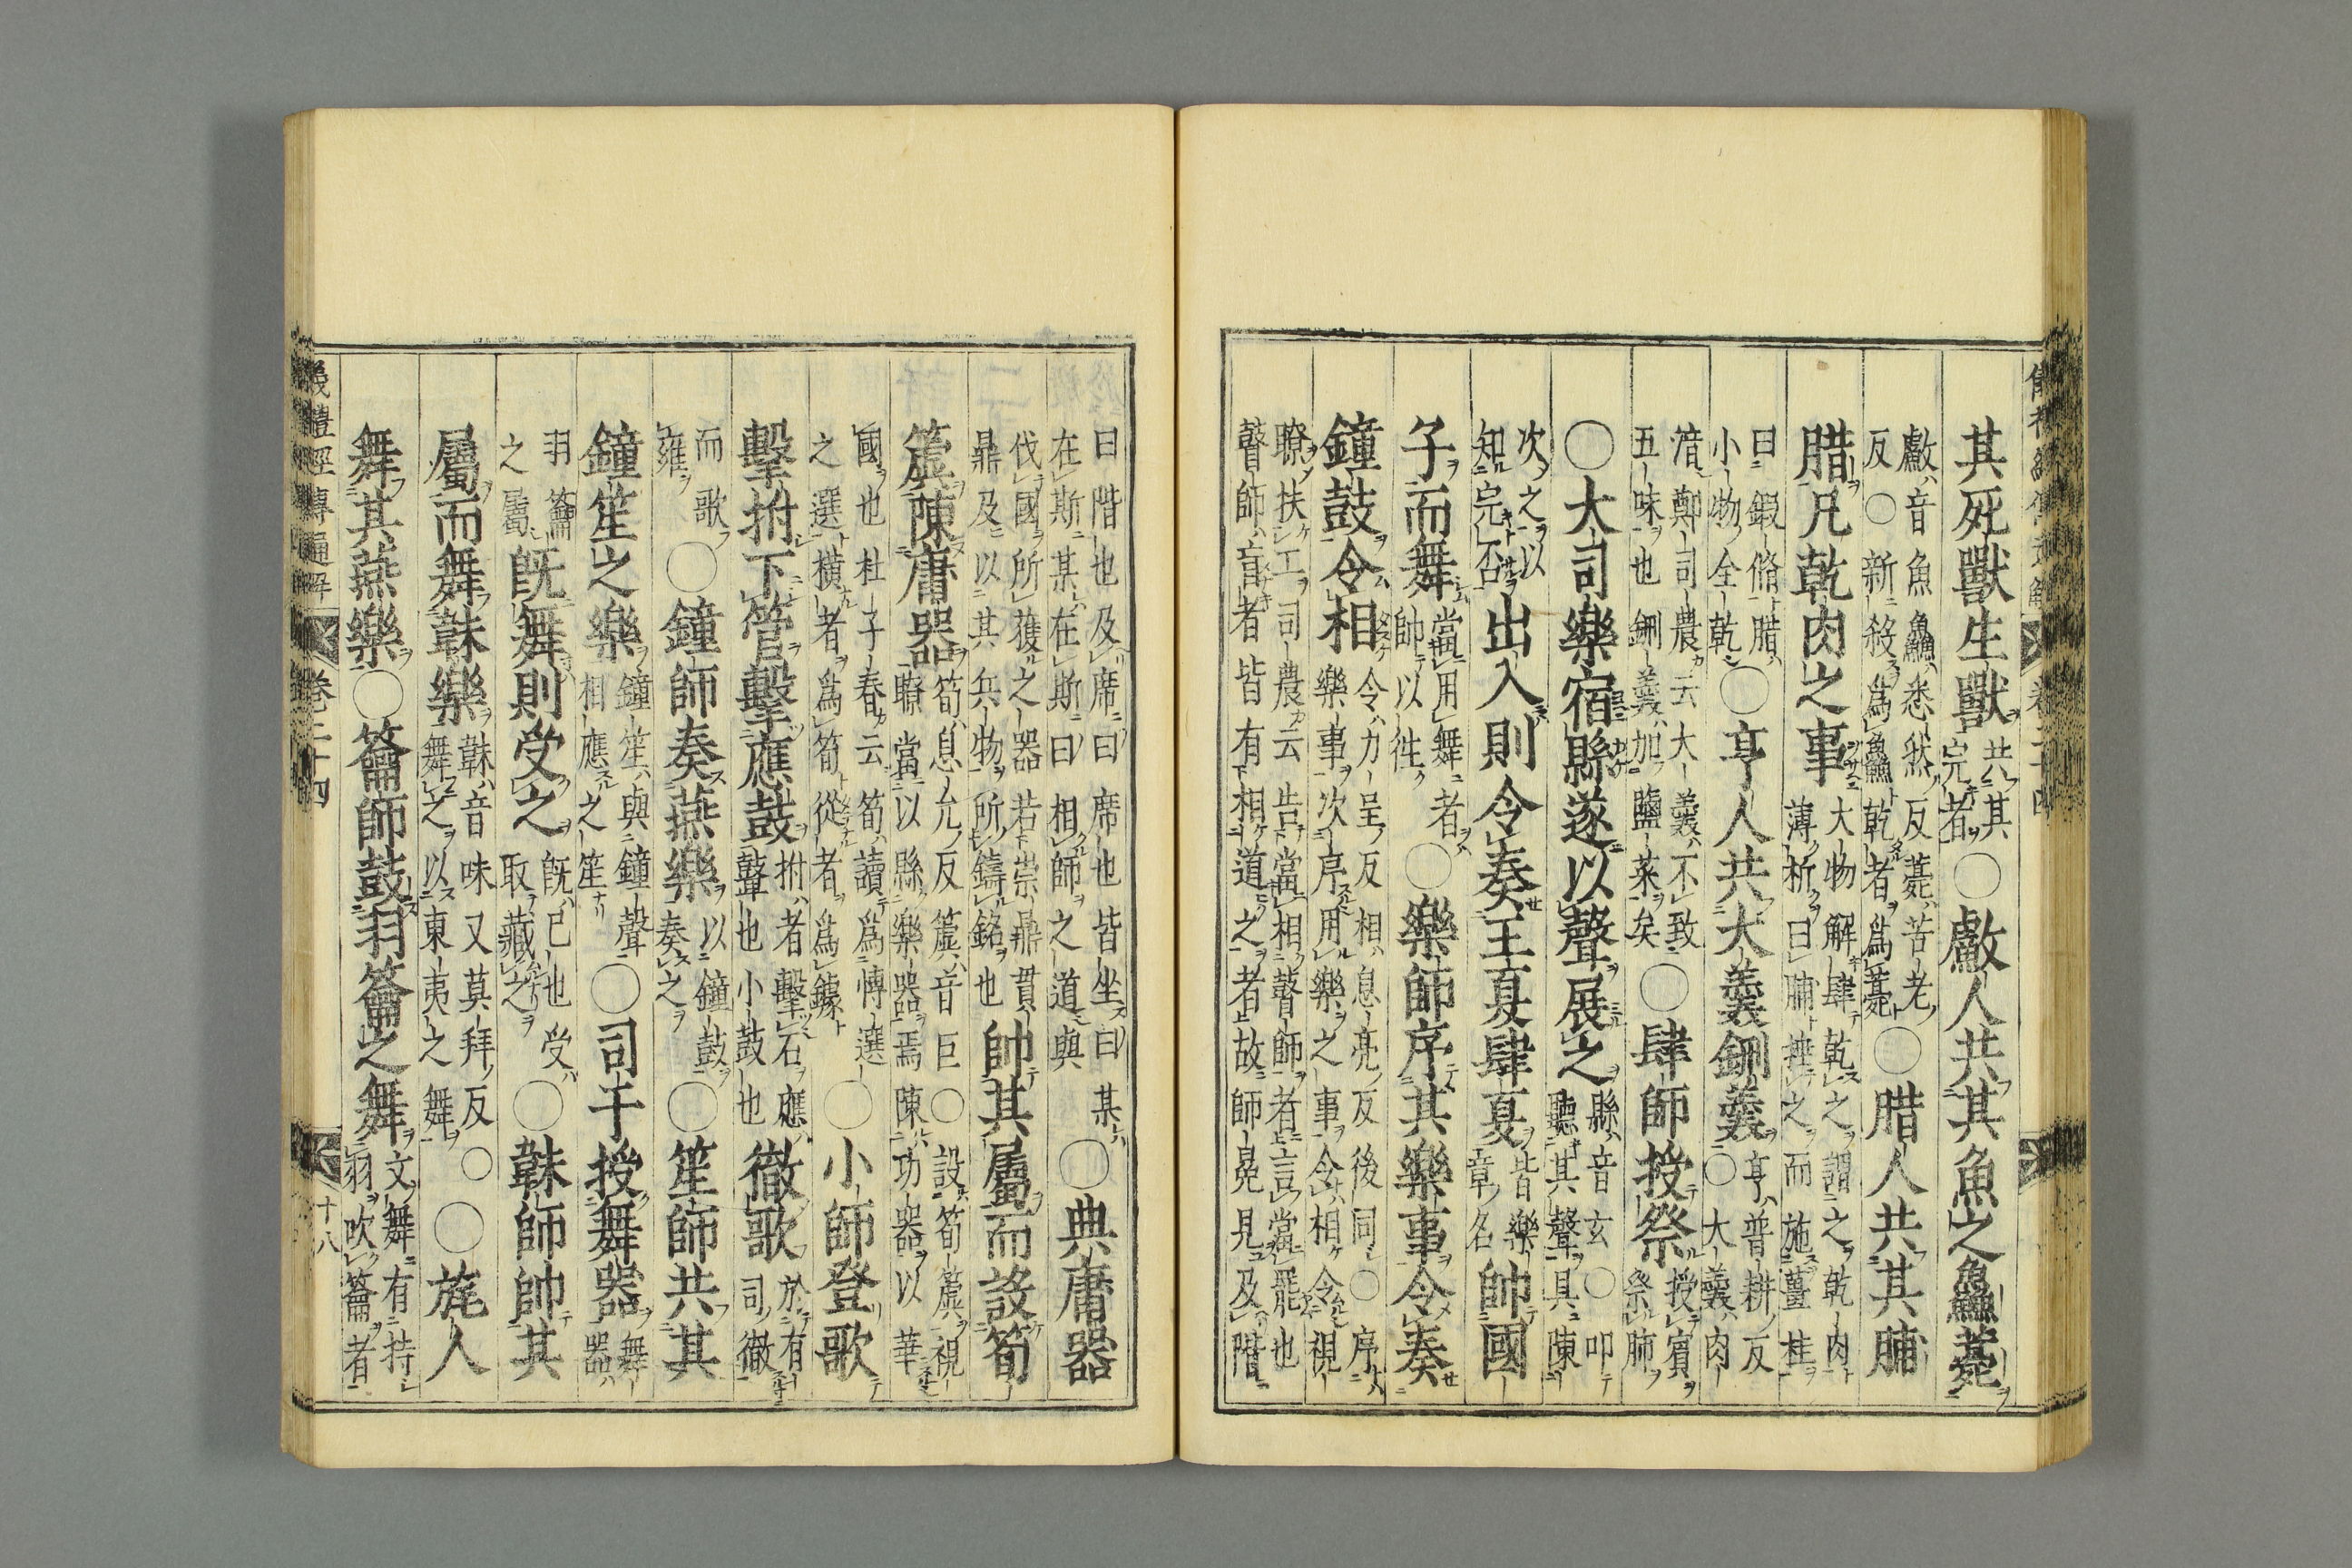 其死獸生獸共其完者〇獻人共其魚之鱻薧
獻音魚鱻悉然反薧苦老反〇新殺爲鱻乾者爲薧〇腊人共其脯
腊凡乾肉之事大物解肆乾之謂之乾肉薄析曰脯捶之而施薑桂
曰鍛脩腊小物全乾〇亨人共大羹鉶羹亨普耕反〇大羹肉
湆鄭司農云大羹不致五味也鉶羹加鹽菜矣〇肆師授祭授賓祭肺
〇大司樂宿縣遂以聲展之縣音玄〇叩聽其聲具陳
次之以知完否出入則令奏王夏肆夏皆樂章名帥國
子而舞當用舞者帥以往〇樂師序其樂事令奏
鐘鼓令相令力呈反相息亮反後同〇序樂事次序用樂之事令相令視
瞭扶工司農云告當相瞽師者言當罷也瞽師盲者皆有相道之者故師冕見及階
曰階也及席曰席也皆坐曰某在斯某在斯曰相師之道與〇典庸器
伐國所獲之器若崇鼎貫鼎及以其兵物所鑄銘也帥其屬而設筍
簴陳庸器筍息允反簴音巨〇設筍簴視瞭當以縣樂器焉陳功器以華
國也杜子春云筍讀爲博選之選橫者爲筍從者爲鐻〇小師登歌
擊拊下管擊應鼓拊者擊石應鼙也小鼓也徹歌於有司徹
而歌雍〇鐘師奏燕樂以鐘鼓奏之〇笙師共其
鐘笙之樂鐘笙與鐘聲相應之笙〇司干授舞器舞器
羽籥之屬既舞則受之既已也受取藏之〇韎師帥其
屬而舞韎樂韎音味又莫拜反〇舞之以東夷之舞〇旄人
舞其燕樂〇籥師鼓羽籥之舞文舞有持羽吹籥者
儀禮經傳通解 卷二十四 十八